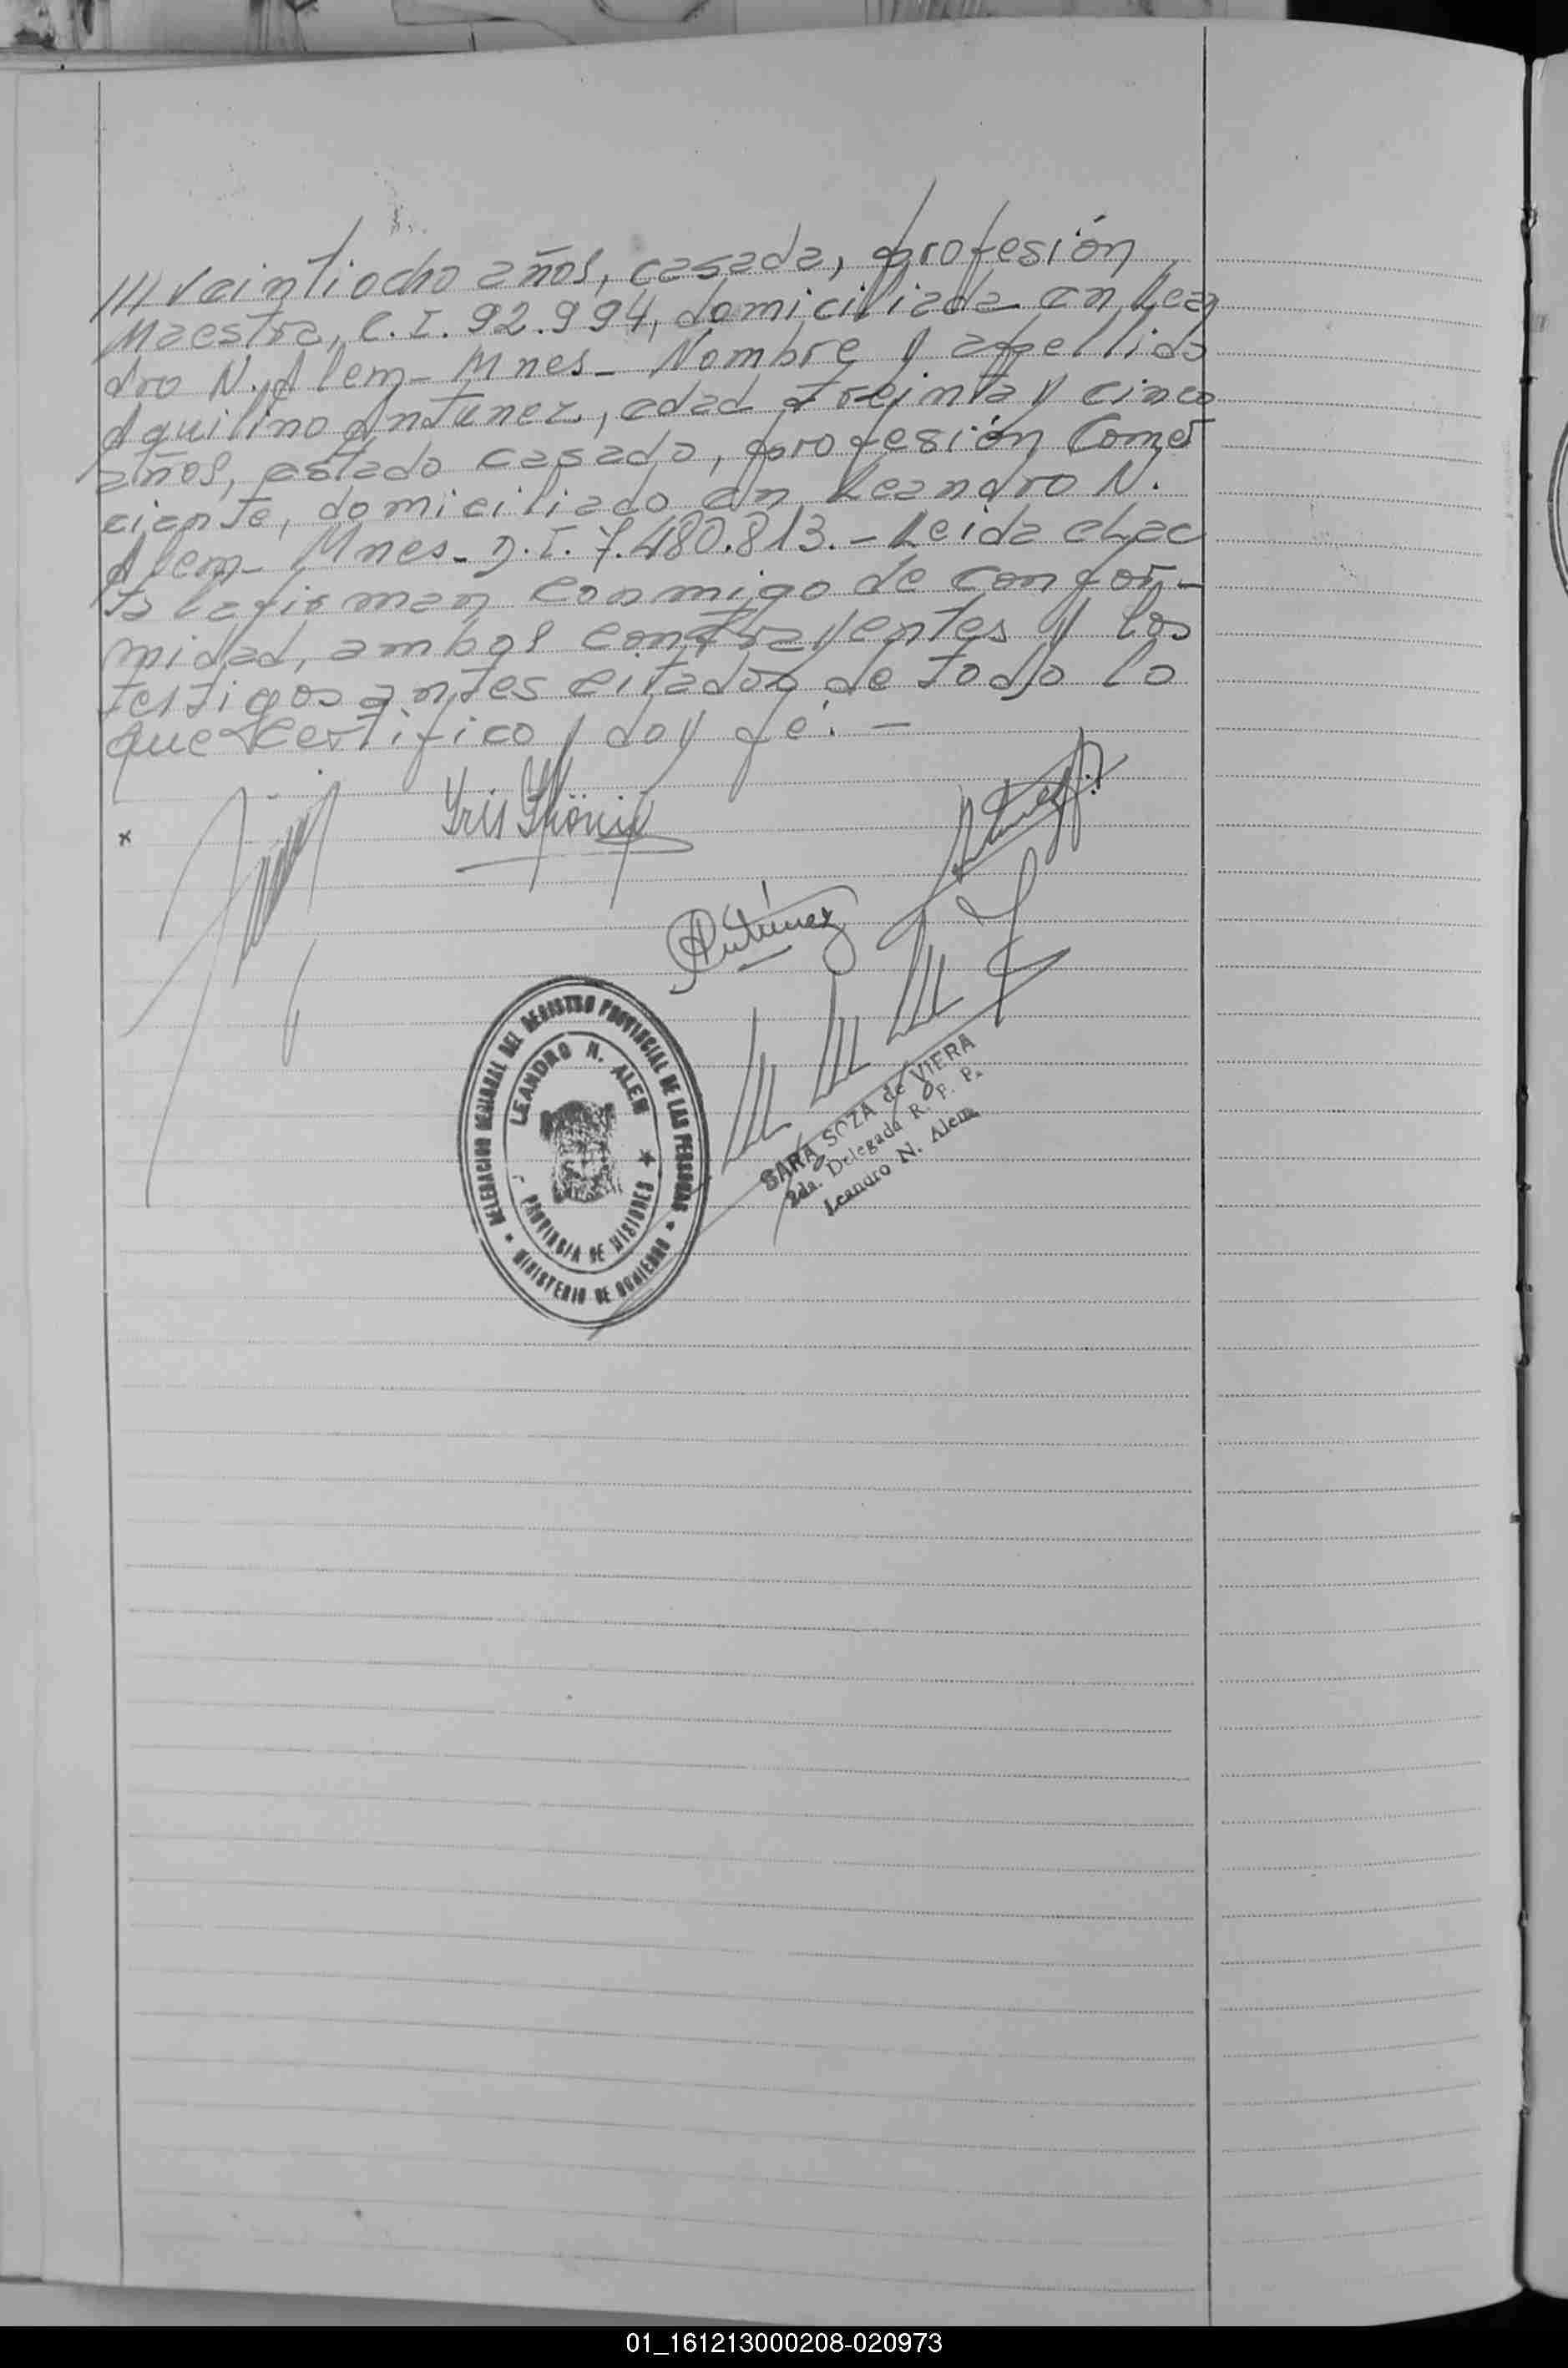 /// Veintiocho años, casada, profesión
Maestra, C.I. 92.994, domiciliada en Lean
dro N. Alem - Mnes - Nombre y apellido
Aquilino Antunez, edad treinta y cinco
años, estado casado, profesión Comer
ciante, domiciliado en Leandro N.
Alem - Mnes - D.I. 7.480.813. - Leida el ac
ta la firman conmigo de confor-
midad, ambos contrayentes y los
testigos antes citados de todo lo
que certifico y doy fé. -
x
Antúnez
DELEGACION REGIONAL DEL REGISTRO PROVINCIAL DE LAS PERSONAS
LEANDRO N. ALEM
PROVINCIA DE MISIONES
MINISTERIO DE GOBIERNO
SARA SOZA de VIERA
2da. Delegada R. P. P.
Leandro N. Alem
01_161213000208-020973